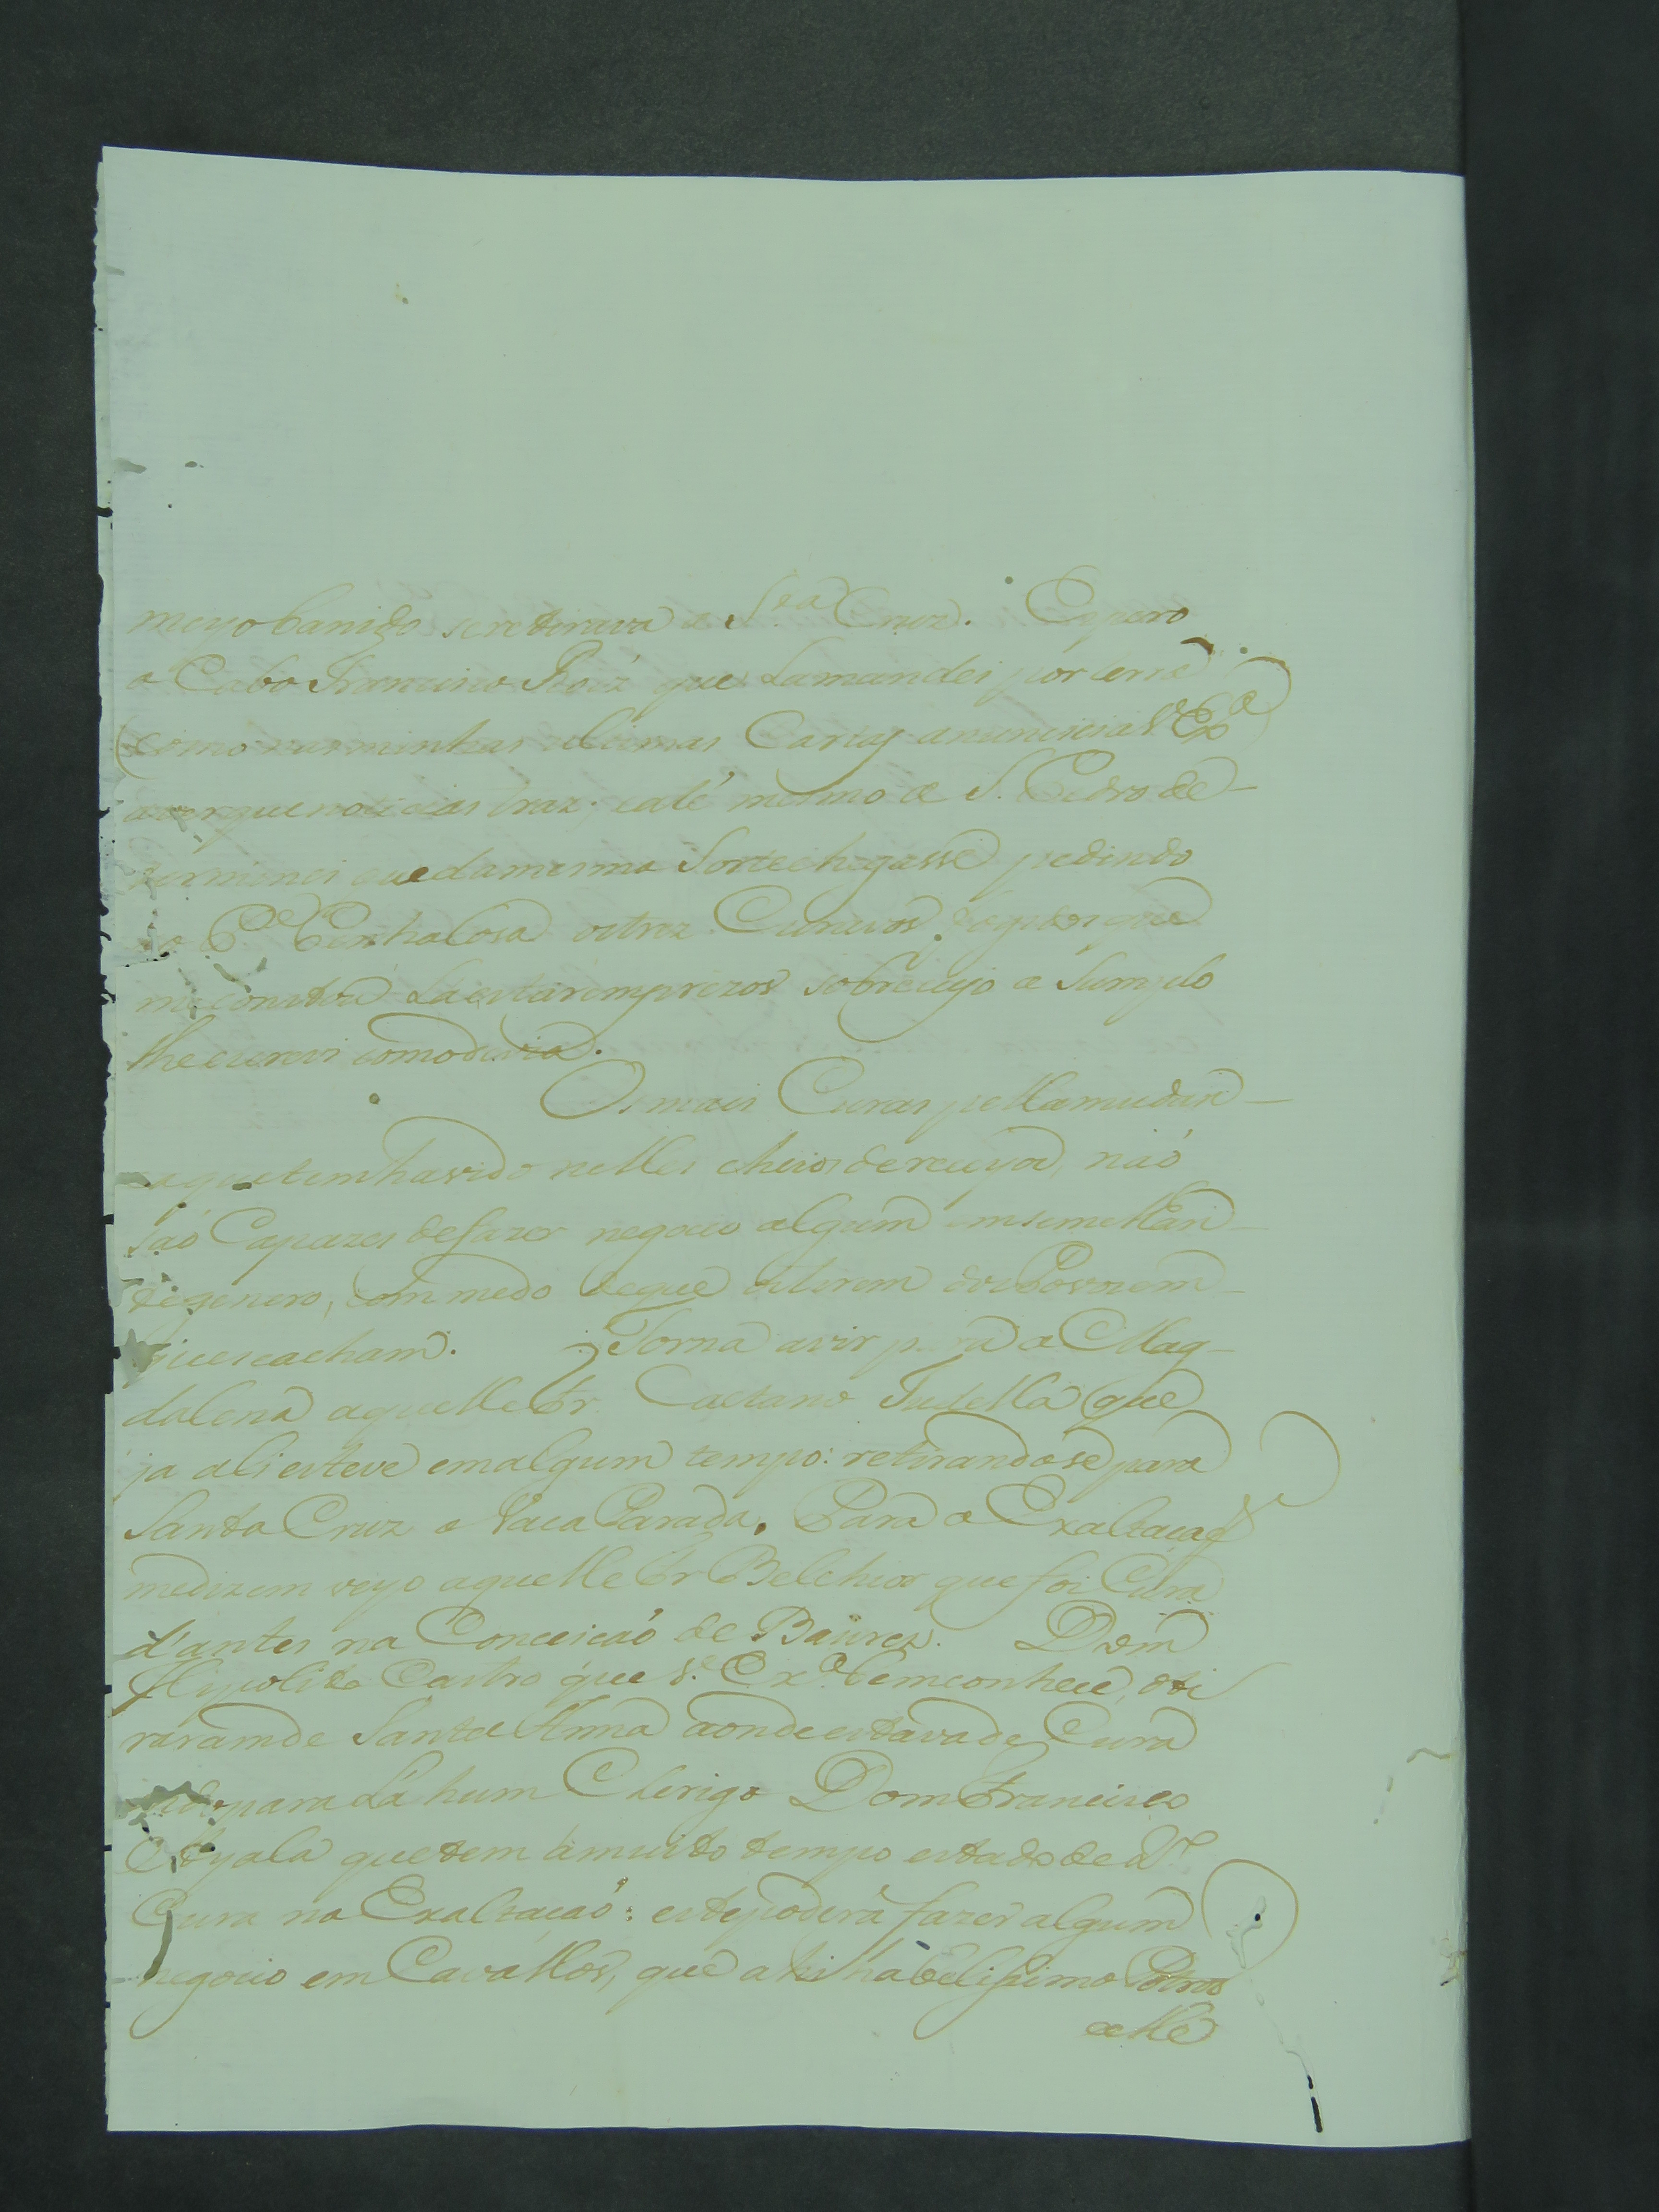 meyo banido se retirava a S.ta Cruz. Espero
o Cabo Francisco Roiz que Lamandei por terra
(como nas minhas ultimas Cartas anunciei a V. Ex.a)
a ver que noticias traz; e até mesmo a S. Pedro de-
terminei que da mesma Sorte chegasse pedindo
ao P.e Penhalosa os trez Curuios
me consta Laestarem prezos sobre cujo a Sumpto
lhe escrevi como devia.
Os mais Curas pella mudan-
ça que tem havido nelles cheios de receyos, naó
saó Capazes de fazer negocio algum em semelhan-
te genero, com medo de que os tirem dos Povos em
que se acham. Torna a vir para a Mag-
dalena aquelle Fr. Caetano Tudella que
ja ali esteve em algum tempo: retirandose para
Santa Cruz o Vaca Parada. Para a Exaltaçaó
me dizem veyo aquelle Fr Belchior que foi Cura
d'antes na Conceicaó de Baures. Dom
Hypolito Castro que V. Ex.a bem conhece, oti
raram de Santa Anna aonde estava de Cura
para Lá hum Clerigo Dom Francisco
Ayala que tem á muito tempo estado de 2.o
Cura na Exaltacaó: este poderá fazer algum
negocio em Cavallos, que ahi há belissimos Potros
elle